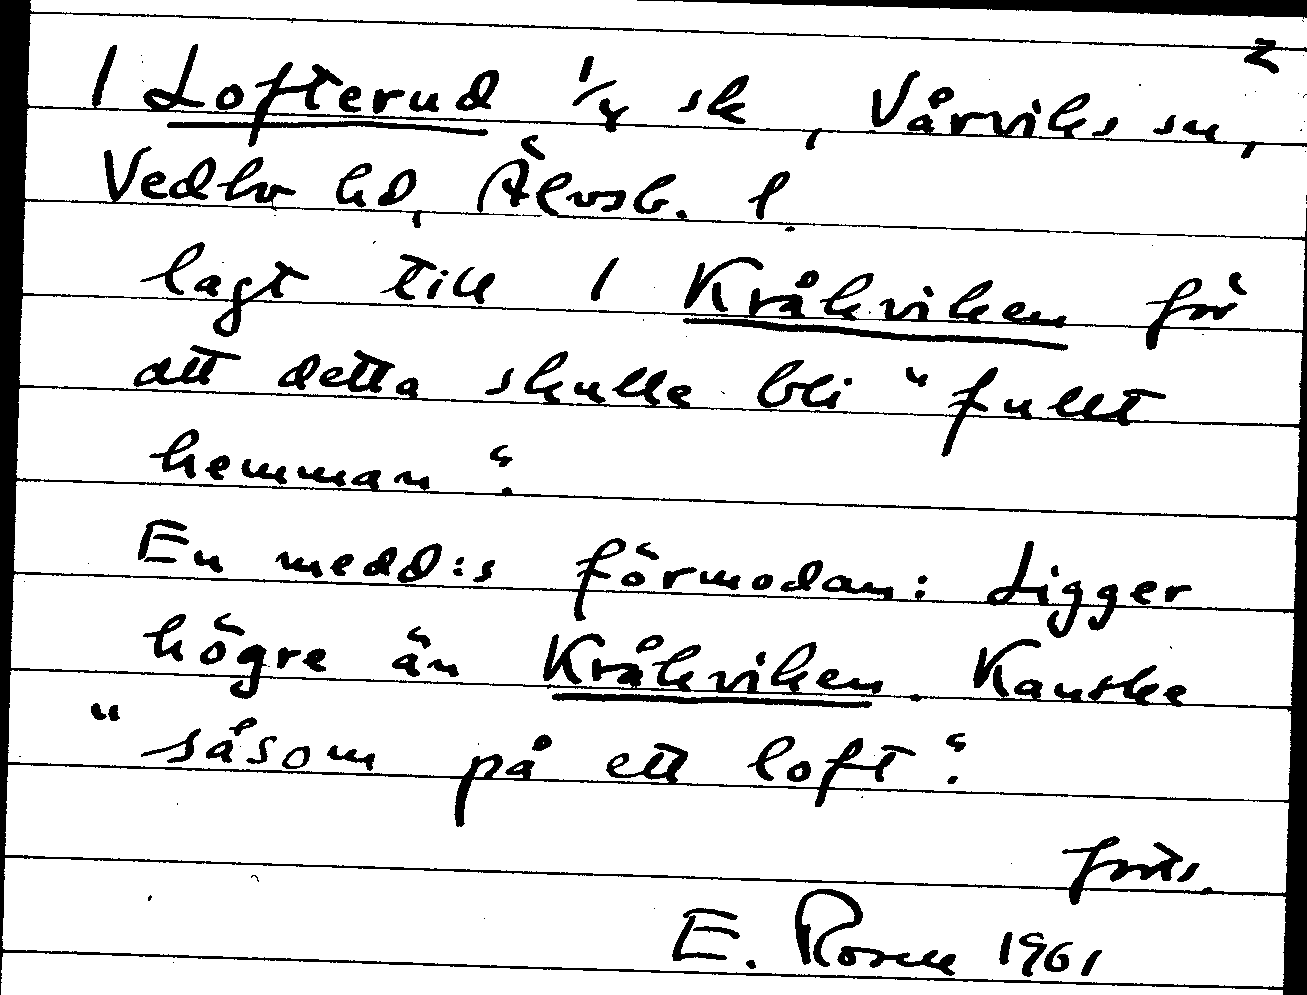 2
1 Lofterud 1/8 sk, Vårviks sn,
Vedbo hd, Älvsb. l.
lagt till 1 Kråkviken för
att detta skulle bli "fullt
hemman".
En medd:s förmodan: Ligger
högre än Kråkviken. Kanske
"såsom på ett loft".
forts.
E. Rosell 1961